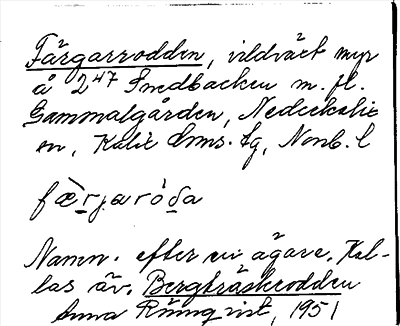 Färgarrodden, vildväxt myr
å 2⁴⁷ Smedbacken m. fl.
Gammalgården, Nederkalix
sn, Kalix kms. tg, Norrb. l
fæ̀rjaróda
Namn. efter en ägare. Kal-
las äv. Bergträskrodden
Anna Rönnqvist, 1951